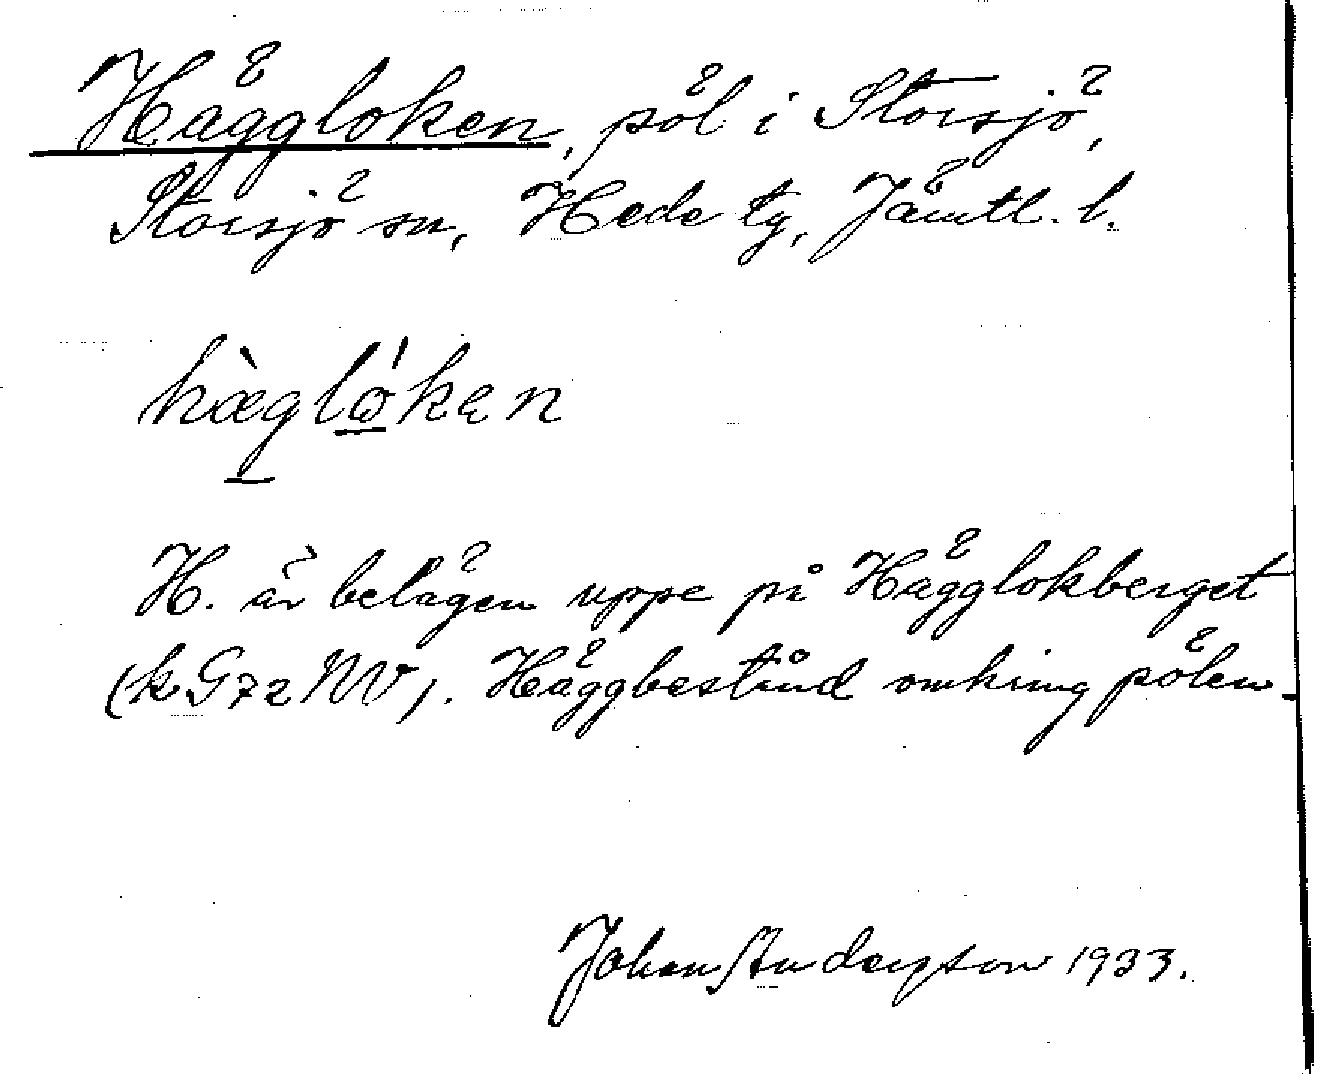 Häggloken, pöl i Storsjö,
Storsjö sn, Hede tg, Jämtl. l.
hæ̀glǿken
H. är belägen uppe på Hägglokberget
(k. G72 NV). Häggbestånd omkring pölen.
Johan Anderzson 1933.